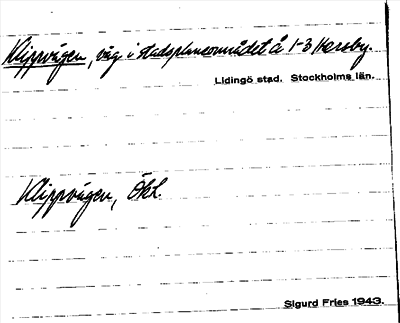 Klippvägen, väg i stadsplaneområdet å 1-3 Hersby.
Lidingö stad. Stockholms län.
Klippvägen, Ökl.
Sigurd Fries 1943.